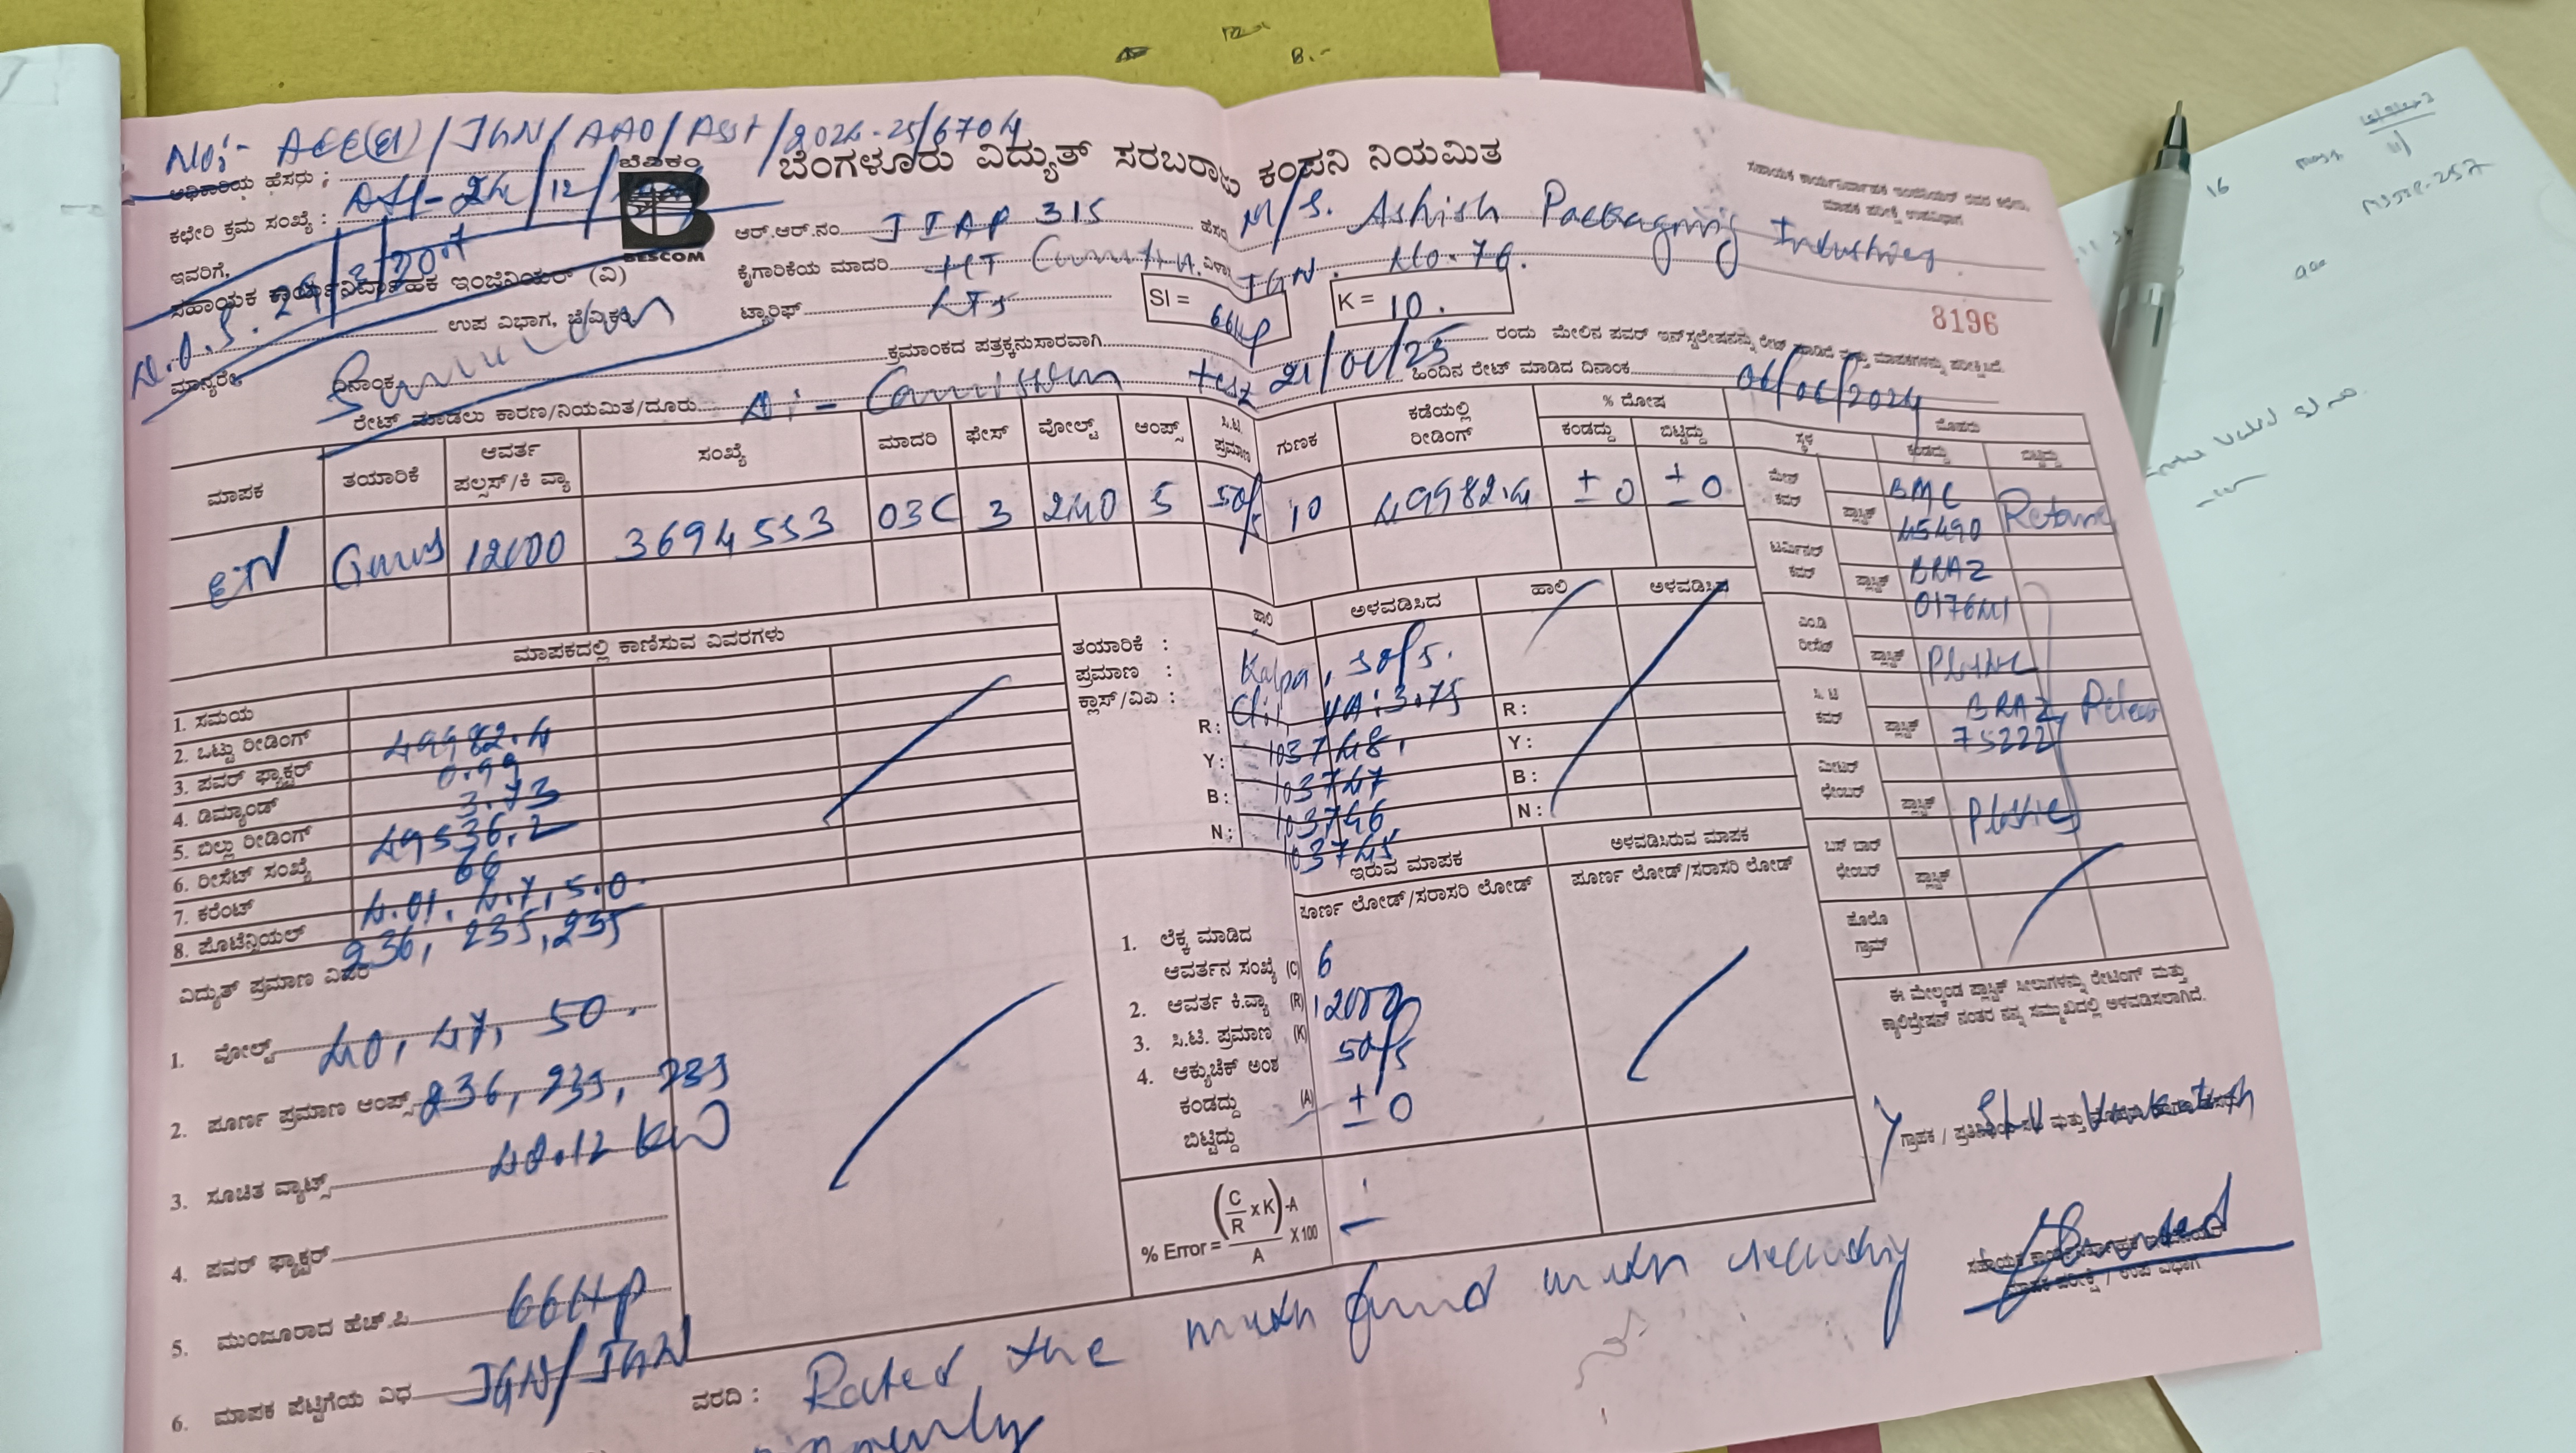 No:- AEE(El)/JGN/AAO/ASST/2024-25/6704
ಬೆವಿಕಂ
ಬೆಂಗಳೂರು ವಿದ್ಯುತ್ ಸರಬರಾಜು ಕಂಪನಿ ನಿಯಮಿತ
ಸಹಾಯಕ ಕಾರ್ಯನಿರ್ವಾಹಕ ಇಂಜಿನಿಯರ್ ರವರ ಕಛೇರಿ,
ಮಾಪಕ ಪರೀಕ್ಷೆ ಉಪವಿಭಾಗ
ಅಧಿಕಾರಿಯ ಹೆಸರು :
ಕಛೇರಿ ಕ್ರಮ ಸಂಖ್ಯೆ :
BESCOM
ಆರ್.ಆರ್.ನಂ. JIAP 315 ಹೆಸರು M/S. Ashish Packaging Industries
ಇವರಿಗೆ,
ಕೈಗಾರಿಕೆಯ ಮಾದರಿ JGN. No. 76.
ಸಹಾಯಕ ಕಾರ್ಯನಿರ್ವಾಹಕ ಇಂಜಿನಿಯರ್ (ವಿ)
ಟ್ಯಾರಿಫ್ LT5 SI = 66HP K = 10.
8196
ಉಪ ವಿಭಾಗ, ಬೆವಿಕಂ
ಕ್ರಮಾಂಕದ ಪತ್ರಕ್ಕನುಸಾರವಾಗಿ 21/01/25 ರಂದು ಮೇಲಿನ ಪವರ್ ಇನ್‌ಸ್ಟಲೇಷನನ್ನು ರೇಟ್ ಮಾಡಿದೆ ಮತ್ತು ಮಾಪಕಗಳನ್ನು ಪರೀಕ್ಷಿಸಿದೆ.
ಮಾನ್ಯರೇ, ದಿನಾಂಕ
ರೇಟ್ ಮಾಡಲು ಕಾರಣ/ನಿಯಮಿತ/ದೂರು ಹಿಂದಿನ ರೇಟ್ ಮಾಡಿದ ದಿನಾಂಕ 06/06/2024
ಮಾಪಕ ತಯಾರಿಕೆ ಆವರ್ತ ಪಲ್ಸಸ್/ಕಿ ವ್ಯಾ ಸಂಖ್ಯೆ ಮಾದರಿ ಫೇಸ್ ವೋಲ್ಟ್ ಆಂಪ್ಸ್ ಸಿ.ಟಿ. ಪ್ರಮಾಣ ಗುಣಕ ಕಡೆಯಲ್ಲಿ ರೀಡಿಂಗ್ % ದೋಷ ಕಂಡದ್ದು ಬಿಟ್ಟಿದ್ದು
ETV Genus 12000 3694553 03C 3 240 5 50/5 10 49982.4 ± 0 ± 0
ಸ್ಥಳ ಮೊಹರು ಕಂಡದ್ದು ಬಿಟ್ಟಿದ್ದು
ಮೇನ್ ಕವರ್ ಪ್ಲಾಸ್ಟಿಕ್ BMC 45490
ಟರ್ಮಿನಲ್ ಕವರ್ ಪ್ಲಾಸ್ಟಿಕ್ BRAZ 017641
ಎಂ.ಡಿ ರೀಸೆಟ್ ಪ್ಲಾಸ್ಟಿಕ್ Plastic
ಸಿ. ಟಿ ಕವರ್ ಪ್ಲಾಸ್ಟಿಕ್ BRAZ 75222
ಮೀಟರ್ ಛೇಂಬರ್ ಪ್ಲಾಸ್ಟಿಕ್ Plastic
ಬಸ್ ಬಾರ್ ಛೇಂಬರ್ ಪ್ಲಾಸ್ಟಿಕ್
ಹೊಲೊ ಗ್ರಾಮ್
ಮಾಪಕದಲ್ಲಿ ಕಾಣಿಸುವ ವಿವರಗಳು
1. ಸಮಯ
2. ಒಟ್ಟು ರೀಡಿಂಗ್ 49982.4
3. ಪವರ್ ಫ್ಯಾಕ್ಟರ್ 0.99
4. ಡಿಮ್ಯಾಂಡ್ 3.73
5. ಬಿಲ್ಲು ರೀಡಿಂಗ್ 49536.2
6. ರೀಸೆಟ್ ಸಂಖ್ಯೆ 66
7. ಕರೆಂಟ್ 4.01, 4.7, 5.0
8. ಪೊಟೆನ್ಷಿಯಲ್ 236, 235, 235
ಹಾಲಿ ಅಳವಡಿಸಿದ ಹಾಲಿ ಅಳವಡಿಸಿದ
ತಯಾರಿಕೆ : Kalpa, 50/5.
ಪ್ರಮಾಣ :
ಕ್ಲಾಸ್/ವಿಎ : VA: 3.75
R: 103748, R:
Y: 103747 Y:
B: 103746 B:
N: 103745 N:
ಇರುವ ಮಾಪಕ ಅಳವಡಿಸಿರುವ ಮಾಪಕ
ಪೂರ್ಣ ಲೋಡ್/ಸರಾಸರಿ ಲೋಡ್ ಪೂರ್ಣ ಲೋಡ್/ಸರಾಸರಿ ಲೋಡ್
1. ಲೆಕ್ಕ ಮಾಡಿದ ಆವರ್ತನ ಸಂಖ್ಯೆ (C) 6
2. ಆವರ್ತ ಕಿ.ವ್ಯಾ (R) 12000
3. ಸಿ.ಟಿ. ಪ್ರಮಾಣ (K) 50/5
4. ಆಕ್ಯುಚೆಕ್ ಅಂಶ
ಕಂಡದ್ದು (A) ± 0
ಬಿಟ್ಟಿದ್ದು
% Error = (C/R x K) -A / A X 100
ವಿದ್ಯುತ್ ಪ್ರಮಾಣ ವಿವರ
1. ವೋಲ್ಟ್ 40, 47, 50.
2. ಪೂರ್ಣ ಪ್ರಮಾಣ ಆಂಪ್ಸ್ 236, 235, 235
3. ಸೂಚಿತ ವ್ಯಾಟ್ಸ್ 40.12 KW
4. ಪವರ್ ಫ್ಯಾಕ್ಟರ್
5. ಮುಂಜೂರಾದ ಹೆಚ್.ಪಿ. 66HP
6. ಮಾಪಕ ಪೆಟ್ಟಿಗೆಯ ವಿಧ JGN/JGN
ಈ ಮೇಲ್ಕಂಡ ಪ್ಲಾಸ್ಟಿಕ್ ಸೀಲುಗಳನ್ನು ರೇಟಿಂಗ್ ಮತ್ತು
ಕ್ಯಾಲಿಬ್ರೇಷನ್ ನಂತರ ನನ್ನ ಸಮ್ಮುಖದಲ್ಲಿ ಅಳವಡಿಸಲಾಗಿದೆ.
ಸಹಾಯಕ ಕಾರ್ಯನಿರ್ವಾಹಕ ಇಂಜಿನಿಯರ್
ಮಾಪಕ ಪರೀಕ್ಷೆ / ಉಪ ವಿಭಾಗ
ವರದಿ : Rated the meter found meter recording